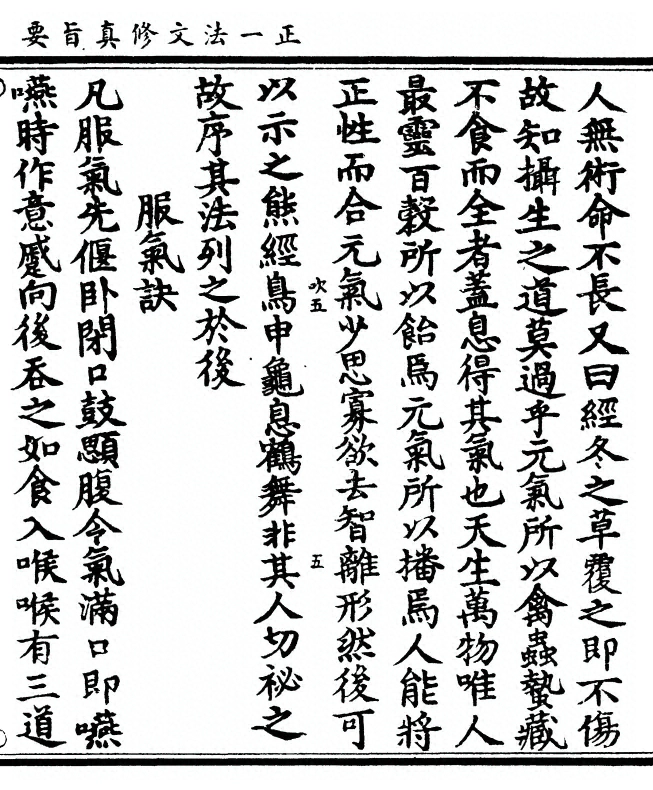 正一法文修真旨要
人無術命不長又曰經冬之草覆之即不傷
故知攝生之道莫過乎元氣所以禽蟲蟄藏
不食而全者蓋息得其氣也天生萬物唯人
最靈百穀所以飴焉元氣所以播焉人能將
正性而合元氣少思寡欲去智離形然後可
吹五
五
以示之熊經鳥申龜息鶴舞非其人切祕之
故序其法列之於後
服氣訣
凡服氣先偃臥閉口鼓顋腹令氣滿口即嚥
嚥時作意蹙向後吞之如食入喉喉有三道